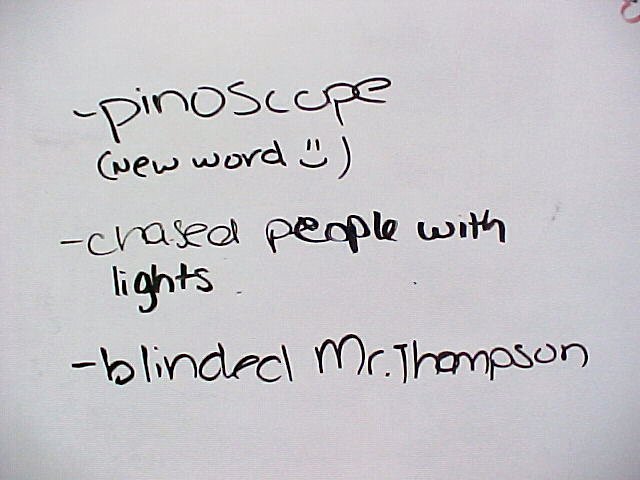 -pinoscope
(New word :))
-chased people with
lights
-blinded Mr. Thompson